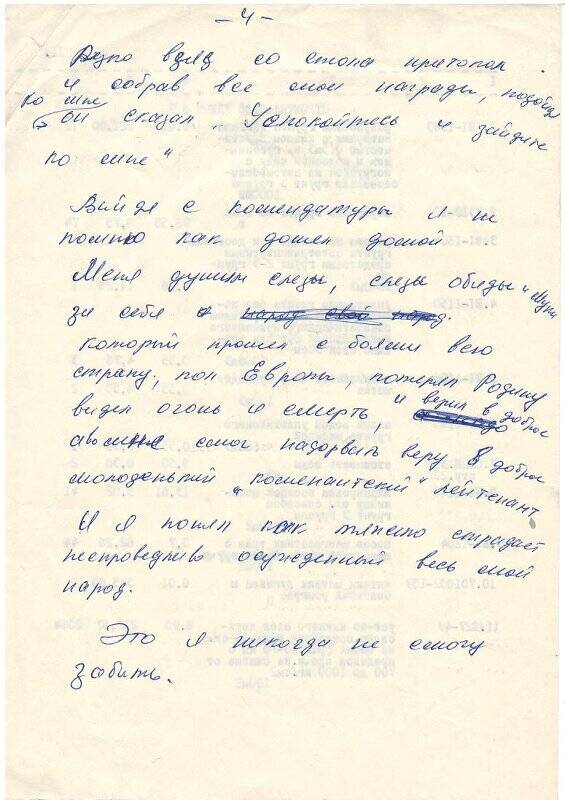 - 4 -
Резко взяв со стола протокол
и собрав все мои награды, подойдя
ко мне
он сказал „Успокойтесь и зайдите
ко мне"
Выйдя с комендатуры я не
помню как дошел домой
Меня душили слезы, слезы обиды
за себя и народ свой народ.
который прошел с боями всю
страну, пол Европы, потерял Родину
видел огонь и смерть, и верил в добро
смог надорвать веру в добро
молоденький „комендантский" лейтенант
И я понял как тяжело страдает
несправедливо осужденный весь мой
народ.
Это я никогда не смогу
забыть.